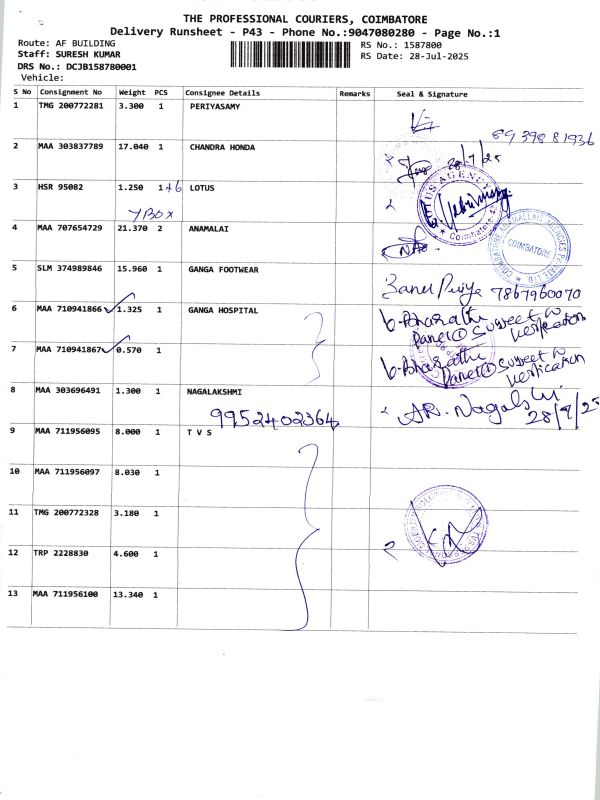 THE PROFESSIONAL COURIERS, COIMBATORE
Delivery Runsheet - P43 - Phone No.:9047080280 - Page No.:1
Route: AF BUILDING
RS No.: 1587800
Staff: SURESH KUMAR
RS Date: 28-Jul-2025
DRS No.: DCJB158780001
Vehicle:
S No Consignment No Weight PCS Consignee Details Remarks Seal & Signature
1 TMG 200772281 3.300 1 PERIYASAMY
89398 81936
2 MAA 303837789 17.040 1 CHANDRA HONDA 28/7/25
3 HSR 95082 1.250 1+6 LOTUS
LOTUS AGENCY
Coimbatore
7 BOX
4 MAA 707654729 21.370 2 ANAMALAI
COIMBATORE
5 SLM 374989846 15.960 1 GANGA FOOTWEAR
Banu Priya 7867960070
6 MAA 710941866 1.325 1 GANGA HOSPITAL b. Bharathi
Panel ① Subject to Verification
7 MAA 710941867 0.570 1 b. Bharathi
Panel ① Subject to Verification
8 MAA 303696491 1.300 1 NAGALAKSHMI
9952402364
AR. Nagalakshmi
28/7/25
9 MAA 711956095 8.000 1 T V S
10 MAA 711956097 8.030 1
11 TMG 200772328 3.180 1
12 TRP 2228830 4.600 1
13 MAA 711956100 13.340 1